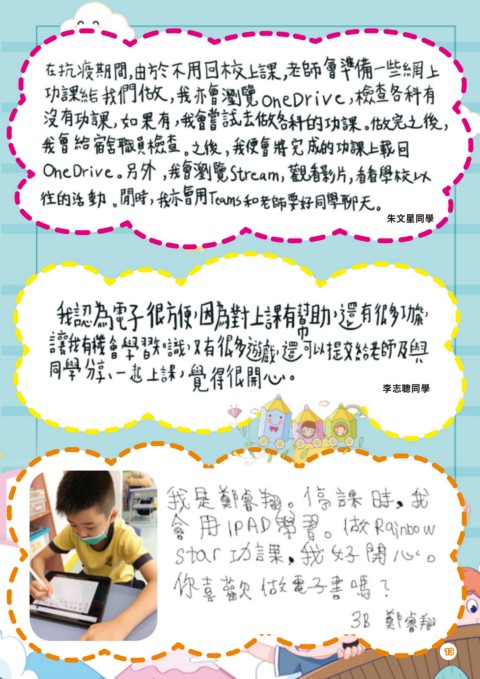 在抗疫期間,由於不用回校上課,老師會準備一些網上
功課給我們做,我亦會瀏覽OneDrive,檢查各科有
沒有功課,如果有,我會嘗試去做各科的功課。做完之後,
我會給宿舍職員檢查。之後,我便會將完成的功課上載回
OneDrive。另外,我會瀏覽Stream,觀看影片,看看學校以
往的活動。閒時,我亦會用Teams和老師要好同學聊天。
朱文星同學
我認為電子很方便,因為對上課有幫助,還有很多功能,
讓我有機會學習知識,又有很多遊戲,還可以提交給老師及與
同學分享、一起上課,覺得很開心。
李志聰同學
我是鄭睿翔。停課時,我
會用IPAD學習。做Rainbow
Star功課,我好開心。
你喜歡做電子書嗎?
3B 鄭睿翔
13